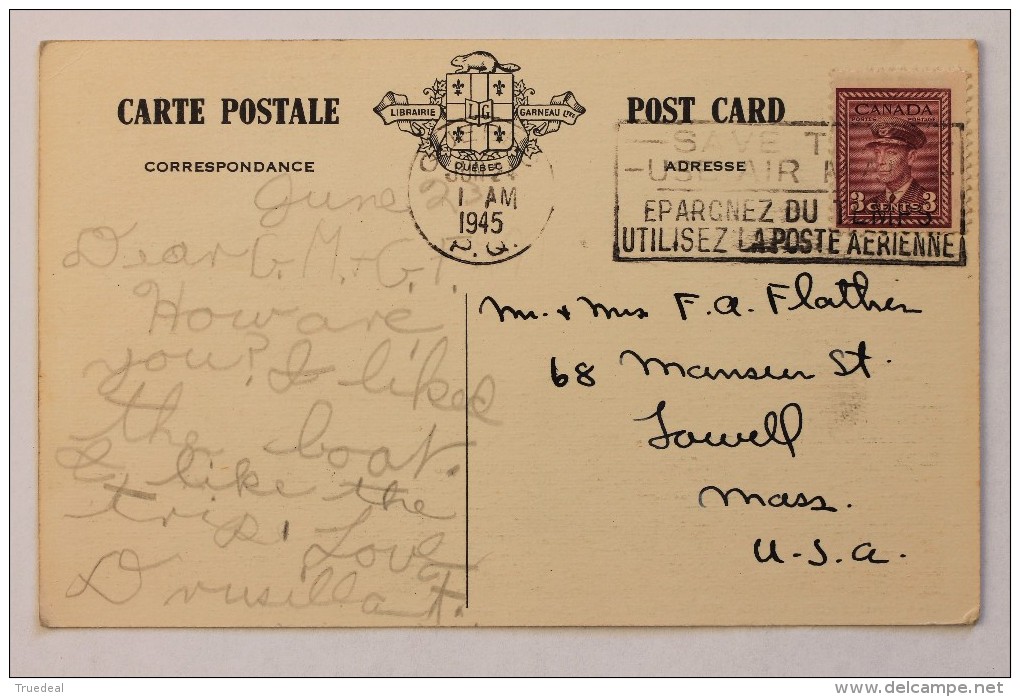 CARTE POSTALE
CORRESPONDANCE
LIBRAIRIE GARNEAU LTÉE
LG
QUÉBEC
POST CARD
ADRESSE
CANADA
POSTES POSTAGE
3 CENTS 3
1 AM
1945
P.Q.
SAVE
USE AIR
EPARGNEZ DU TEMPS
UTILISEZ LA POSTE AERIENNE
June 23
Dear G. M. + G. F.
How are
you? I liked
the boat.
I like the
trip. Love
Drusilla F.
Mr. + Mrs F. A. Flather
68 Mansur St.
Lowell
Mass.
U.S.A.
Truedel
www.delcampe.net